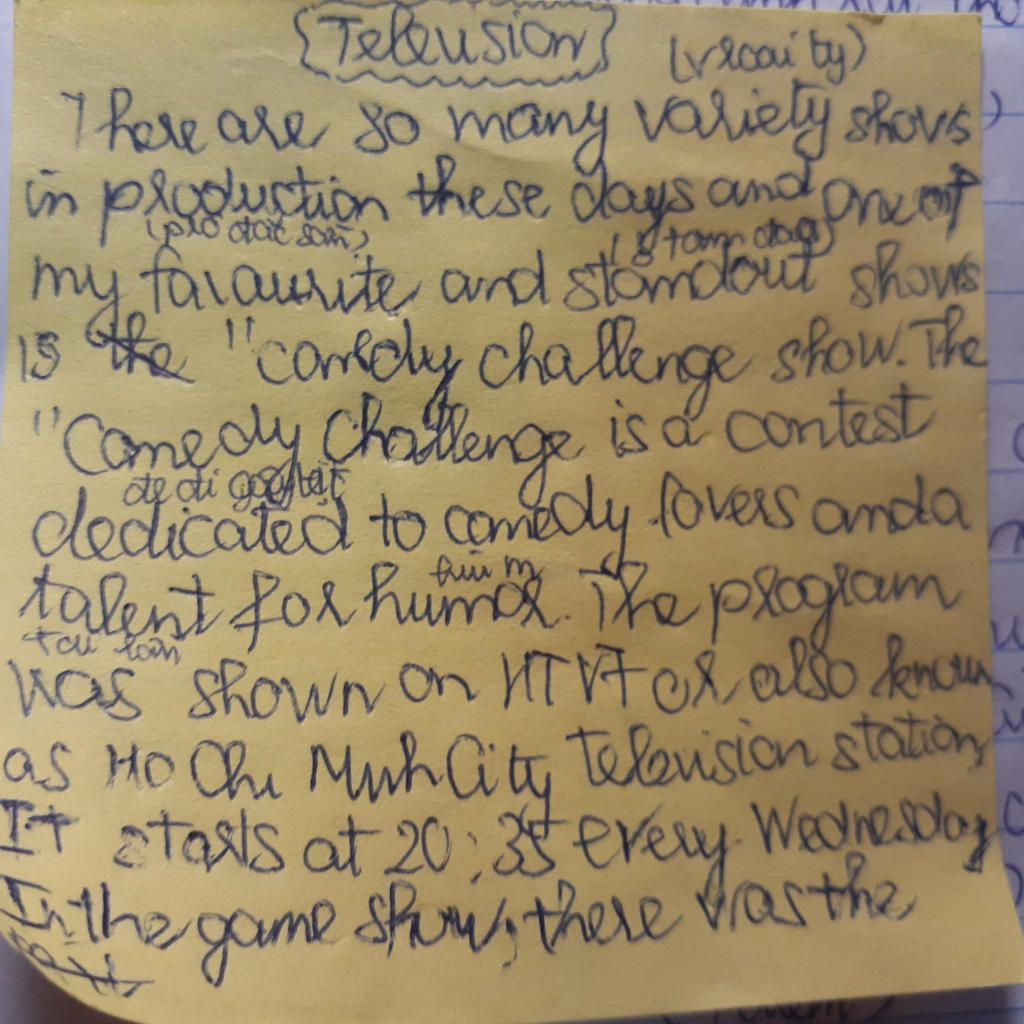 Television
(vơai ty)
There are so many variety shows
in production these days and one of
(prô đắc sơn)
my favaurite and standout shows
is the "comedy challenge show. The
"Comedy Challenge is a contest
dedicated to comedy lovers and a
hiu m
talent for humor. The program
was shown on HTV7 or also known
as Ho Chi Minh City Television station,
It starts at 20:35 every Wednesday
In the game show, there was the